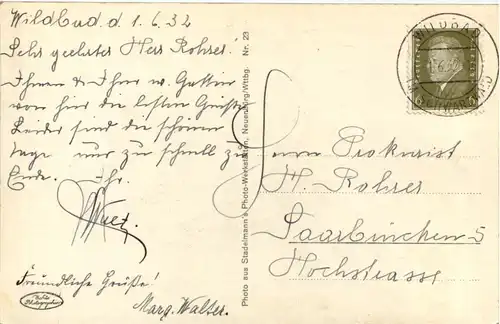 Wildbad d. 1.6.32
Sehr geehrter Herr Rohrer!
Ihnen & Ihrer w. Gattin
von hier die besten Grüße
Leider sind die schönen
Tage nur zu schnell zu
Ende. Ihr
Freundliche Grüße!
Marg. Walter.
Photo aus Stadelmann's Photo-Werkstätten, Neuenbürg/Wttbg. Nr. 23
WILDBAD
1.6.32
SCHWARZWALD
Herrn Prokurist
H. Rohrer
Saarbrücken 5
Hochstrasse